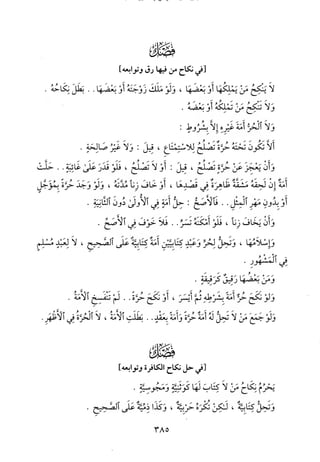 فَصْلٌ
[في نكاح من فيها رق وتوابعه]
لاَ يَنْكِحُ مَنْ يَمْلِكُهَا أَوْ بَعْضَهَا ، وَلَوْ مَلَكَ زَوْجَتَهُ أَوْ بَعْضَهَا . . بَطَلَ نِكَاحُهُ .
وَلاَ تَنْكِحُ مَنْ تَمْلِكُهُ أَوْ بَعْضَهُ .
وَلاَ ٱلْحُرُّ أَمَةَ غَيْرِهِ إِلاَّ بِشُرُوطٍ :
أَلاَّ تَكُونَ تَحْتَهُ حُرَّةٌ تَصْلُحُ لِلاِسْتِمْتَاعِ ، قِيلَ : وَلاَ غَيْرُ صَالِحَةٍ .
وَأَنْ يَعْجِزَ عَنْ حُرَّةٍ تَصْلُحُ ، قِيلَ : أَوْ لاَ تَصْلُحُ ، فَلَوْ قَدَرَ عَلَىٰ غَائِبَةٍ . . حَلَّتْ
أَمَةٌ إِنْ لَحِقَهُ مَشَقَّةٌ ظَاهِرَةٌ فِي قَصْدِهَا ، أَوْ خَافَ زِناً مُدَّتَهُ ، وَلَوْ وَجَدَ حُرَّةً بِمُؤَجَّلٍ
أَوْ بِدُونِ مَهْرِ ٱلْمِثْلِ . . فَٱلأَصَحُّ : حِلُّ أَمَةٍ فِي ٱلأُولَىٰ دُونَ ٱلثَّانِيَةِ .
وَأَنْ يَخَافَ زِناً ، فَلَوْ أَمْكَنَهُ تَسَرٍّ . . فَلاَ خَوْفَ فِي ٱلأَصَحِّ .
وَإِسْلاَمُهَا ، وَتَحِلُّ لِحُرٍّ وَعَبْدٍ كِتَابِيَّيْنِ أَمَةٌ كِتَابِيَّةٌ عَلَى ٱلصَّحِيحِ ، لاَ لِعَبْدٍ مُسْلِمٍ
فِي ٱلْمَشْهُورِ .
وَمَنْ بَعْضُهَا رَقِيقٌ كَرَقِيقَةٍ .
وَلَوْ نَكَحَ حُرٌّ أَمَةً بِشَرْطِهِ ثُمَّ أَيْسَرَ ، أَوْ نَكَحَ حُرَّةً . . لَمْ تَنْفَسِخِ ٱلأَمَةُ .
وَلَوْ جَمَعَ مَنْ لاَ تَحِلُّ لَهُ أَمَةٌ حُرَّةً وَأَمَةً بِعَقْدٍ . . بَطَلَتِ ٱلأَمَةُ ، لاَ ٱلْحُرَّةُ فِي ٱلأَظْهَرِ .
فَصْلٌ
[في حل نكاح الكافرة وتوابعه]
يَحْرُمُ نِكَاحُ مَنْ لاَ كِتَابَ لَهَا كَوَثَنِيَّةٍ وَمَجُوسِيَّةٍ .
وَتَحِلُّ كِتَابِيَّةٌ ، لَـٰكِنْ تُكْرَهُ حَرْبِيَّةٌ ، وَكَذَا ذِمِّيَّةٌ عَلَى ٱلصَّحِيحِ .
٣٨٥